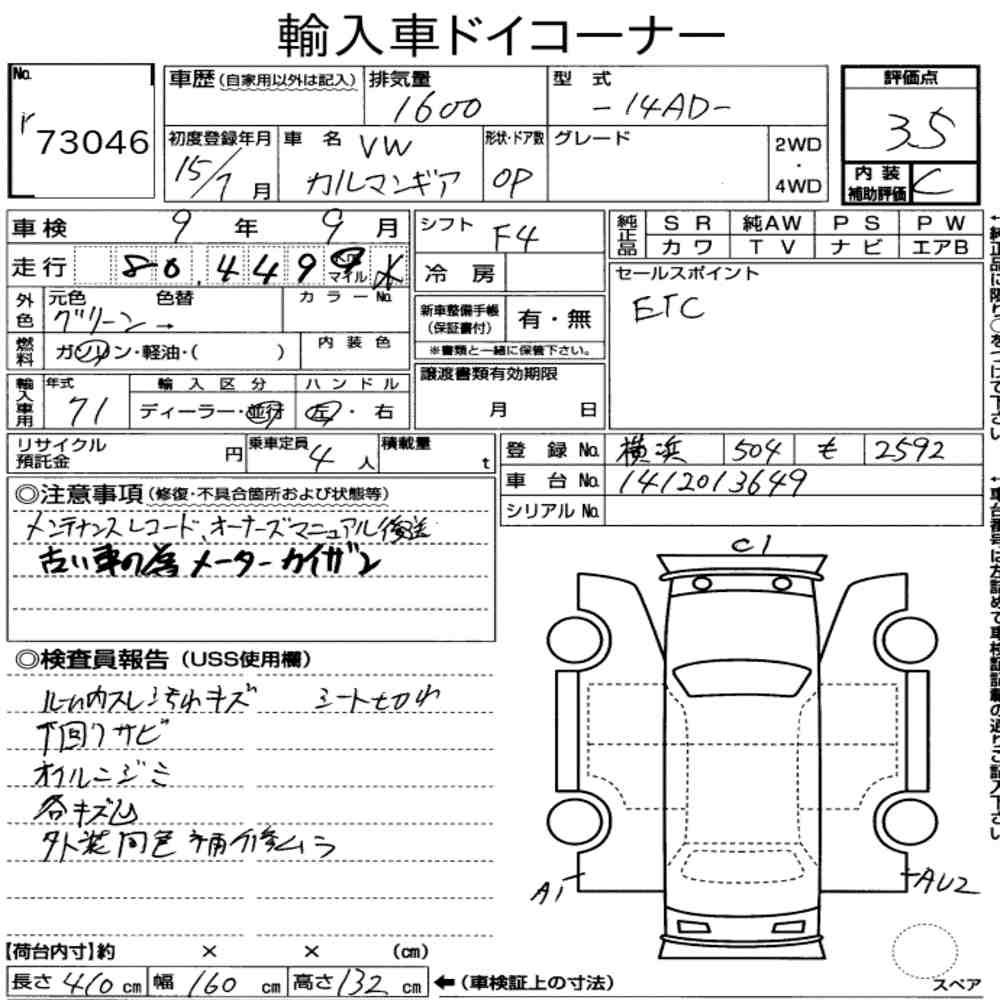 輸入車ドイコーナー
No.
r 73046
車歴 (自家用以外は記入)
排気量
1600
型式
-14AD-
評価点
3.5
内装補助評価 C
初度登録年月
15/7月
車名 VW
カルマンギア
形状・ドア数
OP
グレード
2WD
・
4WD
車検 9年 9月
走行 80,449 マイル
外色
元色 色替
グリーン →
カラーNo.
燃料
ガソリン・軽油・( )
内装色
輸入車用
年式
71
輸入区分
ディーラー・並行
ハンドル
左・右
シフト F4
冷房
新車整備手帳
(保証書付)
有・無
※書類と一緒に保管下さい。
譲渡書類有効期限
月 日
純正品
SR 純AW PS PW
カワ TV ナビ エアB
セールスポイント
ETC
←純正品に限り○をつけて下さい
リサイクル預託金 円
乗車定員 4人
積載量 t
登録No. 横浜 504 も 2592
車台No. 1412013649
シリアルNo.
◎注意事項 (修復・不具合箇所および状態等)
メンテナンスレコード、オーナーズマニュアル後送
古い車の為メーターカイザン
◎検査員報告 (USS使用欄)
ルーム内スレ シートセカ
下回りサビ
オイルニジミ
各キズ凹
外装同色補修ムラ
C1
A1
AU2
スペア
【荷台内寸】約 × × (cm)
長さ 410cm 幅 160cm 高さ 132cm ←(車検証上の寸法)